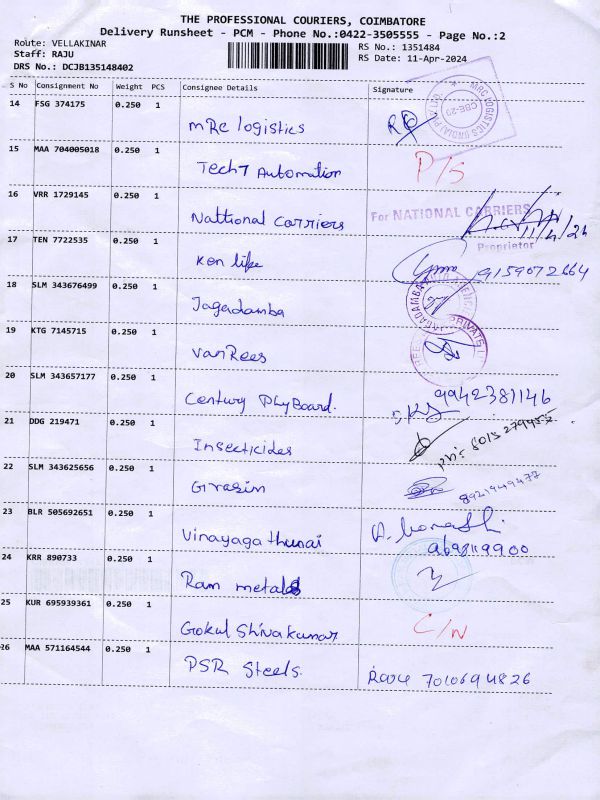 THE PROFESSIONAL COURIERS, COIMBATORE
Delivery Runsheet - PCM - Phone No.:0422-3505555 - Page No.:2
Route: VELLAKINAR
RS No.: 1351484
Staff: RAJU
RS Date: 11-Apr-2024
DRS No.: DCJB135148402
S No Consignment No Weight PCS Consignee Details Signature
14 FSG 374175 0.250 1
MRC logistics
15 MAA 704005018 0.250 1
Tech7 Automation P/S
16 VRR 1729145 0.250 1
Nattional Carriers For NATIONAL CARRIERS
11/4/24
Proprietor
17 TEN 7722535 0.250 1
Ken life 9159072664
18 SLM 343676499 0.250 1
Jagadamba
19 KTG 7145715 0.250 1
VanRees
20 SLM 343657177 0.250 1
Century PlyBoard. 9942381146
21 DDG 219471 0.250 1
Insecticides
22 SLM 343625656 0.250 1
Grasim 8921949477
23 BLR 505692651 0.250 1
Vinayaga thunai
24 KRR 890733 0.250 1
Ram metals
25 KUR 695939361 0.250 1
Gokul Shivakumar C/N
26 MAA 571164544 0.250 1
PSR Steels. 7010694826